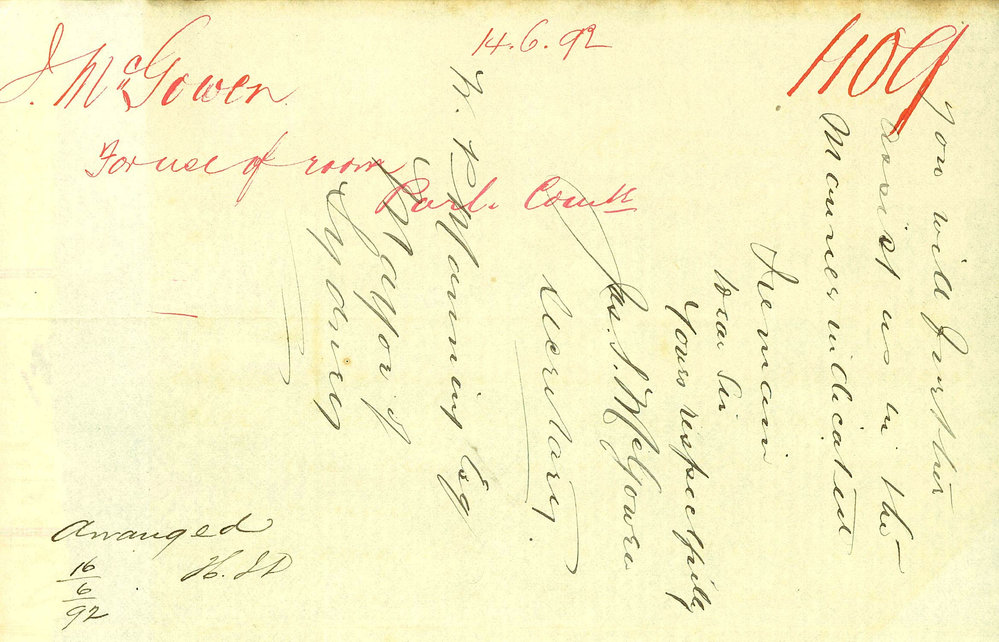 14.6.92
1109
J. McGowen
For use of room
Parl. Comtt
you will further
assist us in the
Manner indicated
I remain
Dear Sir
Yours respectfully
Jas. S. McGowen
Secretary
W. P. Manning Esq
Mayor of
Sydney
Arranged
16
6
92